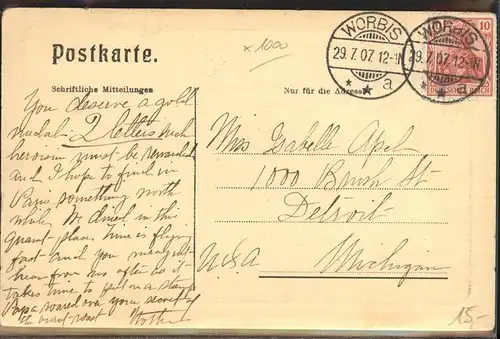 x 1000
Postkarte.
WORBIS
29.7.07.12-1N
* * a
WORBIS
29.7.07.12-1N
* * a
10
DEUTSCHES REICH
Schriftliche Mitteilungen
Nur für die Adresse
You deserve a gold
medal. 2 letters such
heroism must be rewarded
and I hope to find in
Paris something worth
while. We dined in this
place, time is flying
fast and you
hear from us often as it
takes time to
Papa over your
the
Mother
Miss Isabelle Apel
1000 Brush St
Detroit
Michigan
U.S.A
15,-